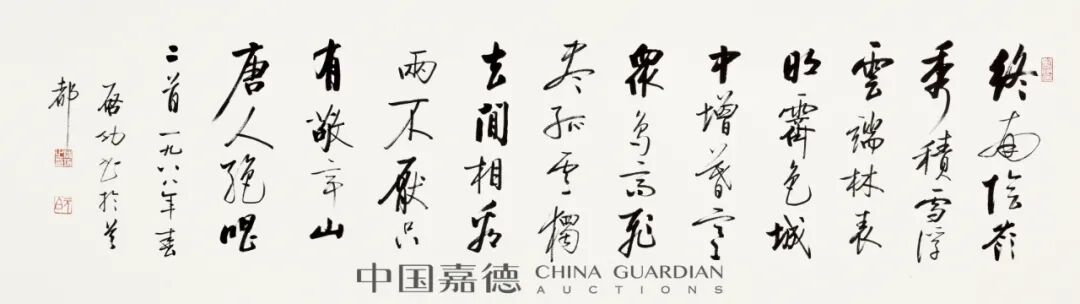 終南陰嶺
秀積雪浮
雲端林表
明霽色城
中增暮寒
眾鳥高飛
盡孤雲獨
去閒相看
兩不厭只
有敬亭山
唐人絕唱
二首一九八八年春
啟功書於首
都
中国嘉德 CHINA GUARDIAN
AUCTIONS